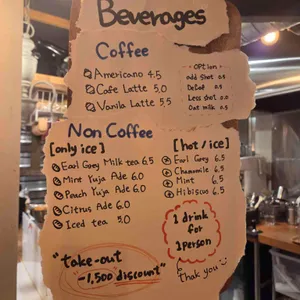 Beverages
Coffee
Americano 4.5
Cafe Latte 5.0
Vanila Latte 5.5
- OPTION -
add shot 0.5
Decaf 0.5
Less shot 0.0
Oat milk 0.5
Non Coffee
[only ice]
Earl Grey Milk tea 6.5
Mint Yuja Ade 6.0
Peach Yuja Ade 6.0
Citrus Ade 6.0
Iced tea 5.0
[hot / ice]
Earl Grey 6.5
Chamomile 6.5
Mint 6.5
Hibiscus 6.5
1 drink
for
1 person
"take-out
-1,500 discount"
thank you